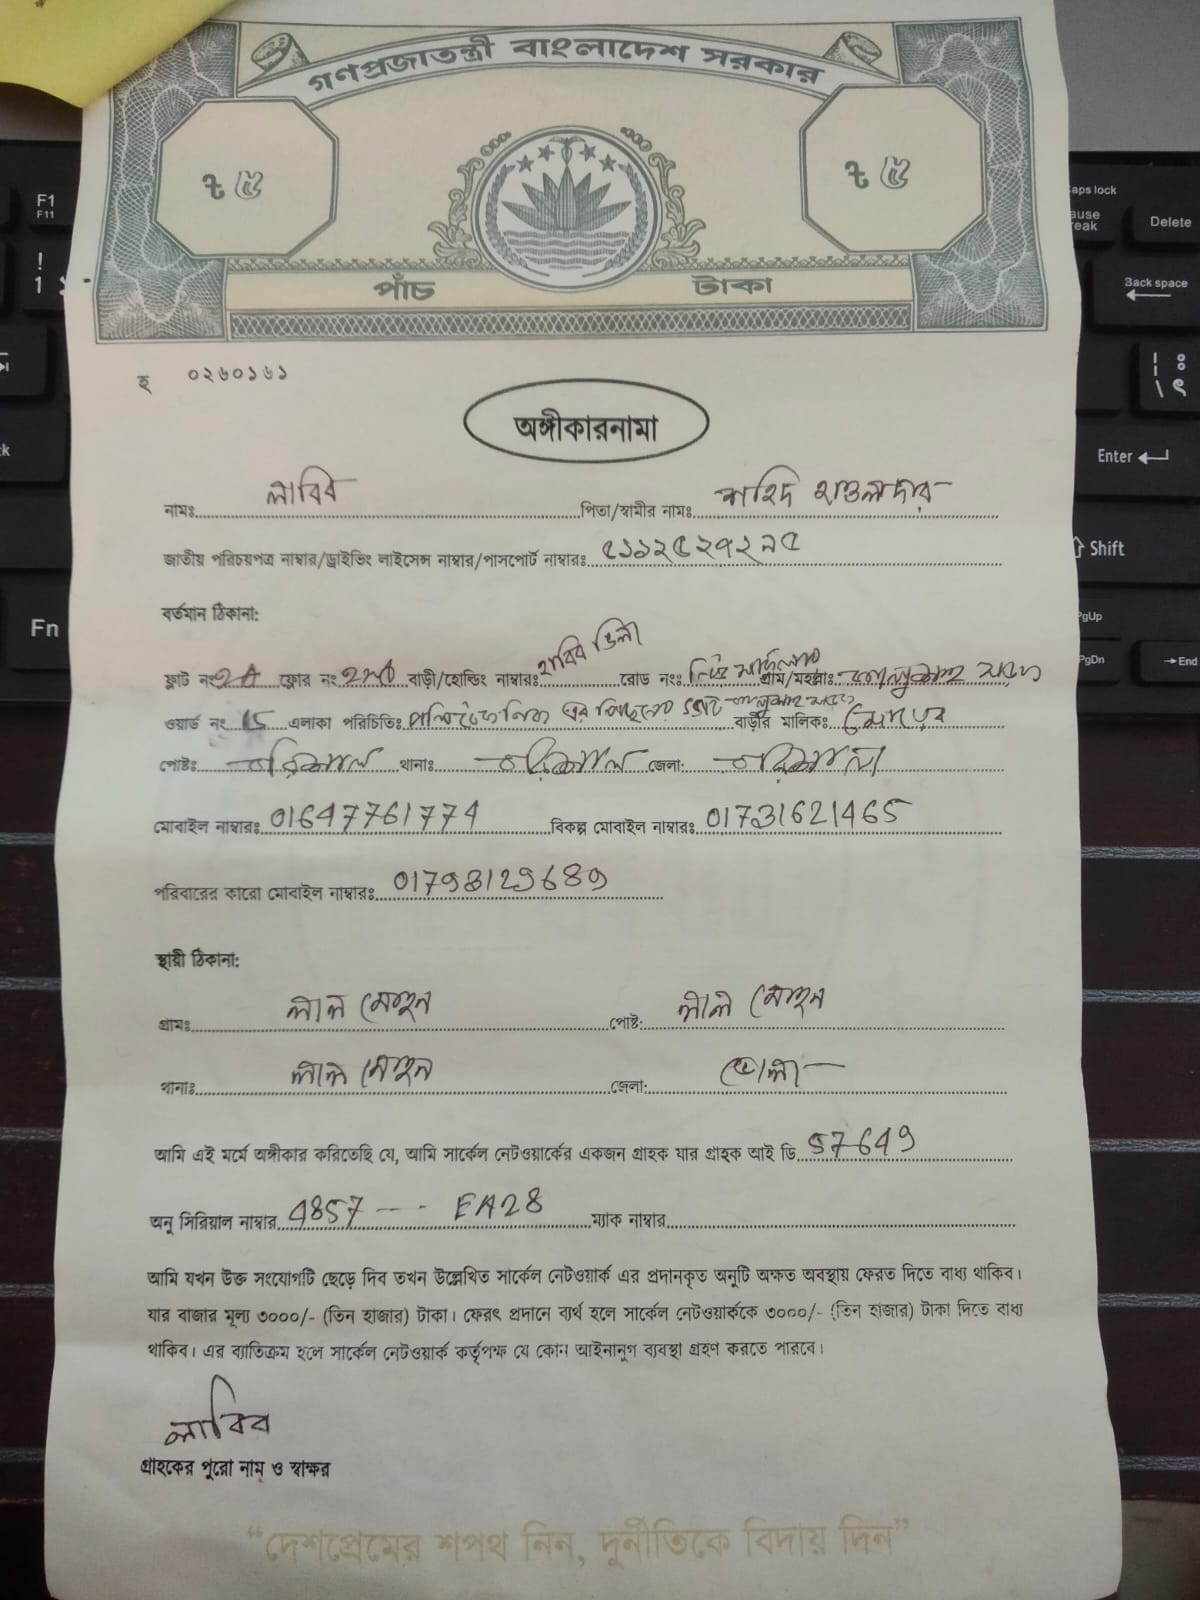 গণপ্রজাতন্ত্রী বাংলাদেশ সরকার
৳ ৫ ৳ ৫
পাঁচ টাকা
হ ০২৬০১৬১
অঙ্গীকারনামা
নামঃ লাবিব পিতা/স্বামীর নামঃ শহিদ হাওলাদার
জাতীয় পরিচয়পত্র নাম্বার/ড্রাইভিং লাইসেন্স নাম্বার/পাসপোর্ট নাম্বারঃ ৫১১২৫২৭২৯৫
বর্তমান ঠিকানা:
ফ্লাট নং 2A ফ্লোর নং বাড়ী/হোল্ডিং নাম্বারঃ হাবিব ভিলা রোড নংঃ গ্রাম/মহল্লা:
ওয়ার্ড নং 15 এলাকা পরিচিতিঃ বাড়ীর মালিক:
পোষ্টঃ বরিশাল থানাঃ বরিশাল জেলা: বরিশাল
মোবাইল নাম্বারঃ 01647761774 বিকল্প মোবাইল নাম্বারঃ 01731621465
পরিবারের কারো মোবাইল নাম্বারঃ 01798129689
স্থায়ী ঠিকানা:
গ্রামঃ লাল মোহন পোষ্ট: লাল মোহন
থানাঃ লাল মোহন জেলা: ভোলা
আমি এই মর্মে অঙ্গীকার করিতেছি যে, আমি সার্কেল নেটওয়ার্কের একজন গ্রাহক যার গ্রাহক আই ডি 57649
অনু সিরিয়াল নাম্বার 4857 --- EA28 ম্যাক নাম্বার
আমি যখন উক্ত সংযোগটি ছেড়ে দিব তখন উল্লেখিত সার্কেল নেটওয়ার্ক এর প্রদানকৃত অনুটি অক্ষত অবস্থায় ফেরত দিতে বাধ্য থাকিব।
যার বাজার মূল্য ৩০০০/- (তিন হাজার) টাকা। ফেরৎ প্রদানে ব্যর্থ হলে সার্কেল নেটওয়ার্ককে ৩০০০/- (তিন হাজার) টাকা দিতে বাধ্য
থাকিব। এর ব্যতিক্রম হলে সার্কেল নেটওয়ার্ক কর্তৃপক্ষ যে কোন আইনানুগ ব্যবস্থা গ্রহণ করতে পারবে।
লাবিব
গ্রাহকের পুরো নাম ও স্বাক্ষর
“দেশপ্রেমের শপথ নিন, দুর্নীতিকে বিদায় দিন”
F1
F11
Fn
Caps lock
Delete
Back space
Enter
Shift
PgUp
PgDn
End